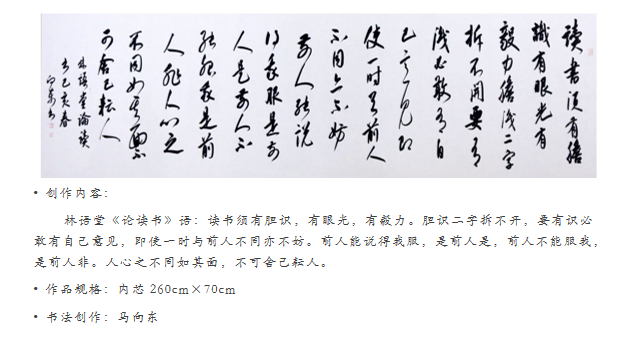 读书须有膽
識有眼光有
毅力膽识二字
拆不开要有
识必敢有自
己意见即
使一时与前人
不同亦不妨
前人能说
得我服是前
人是前人不
能服我是前
人非人心之
不同如其面不
可舍己耘人
林语堂论读
书己亥春
向东书
• 创作内容：
林语堂《论读书》语：读书须有胆识，有眼光，有毅力。胆识二字拆不开，要有识必
敢有自己意见，即使一时与前人不同亦不妨。前人能说得我服，是前人是，前人不能服我，
是前人非。人心之不同如其面，不可舍己耘人。
• 作品规格：内芯 260cm×70cm
• 书法创作：马向东